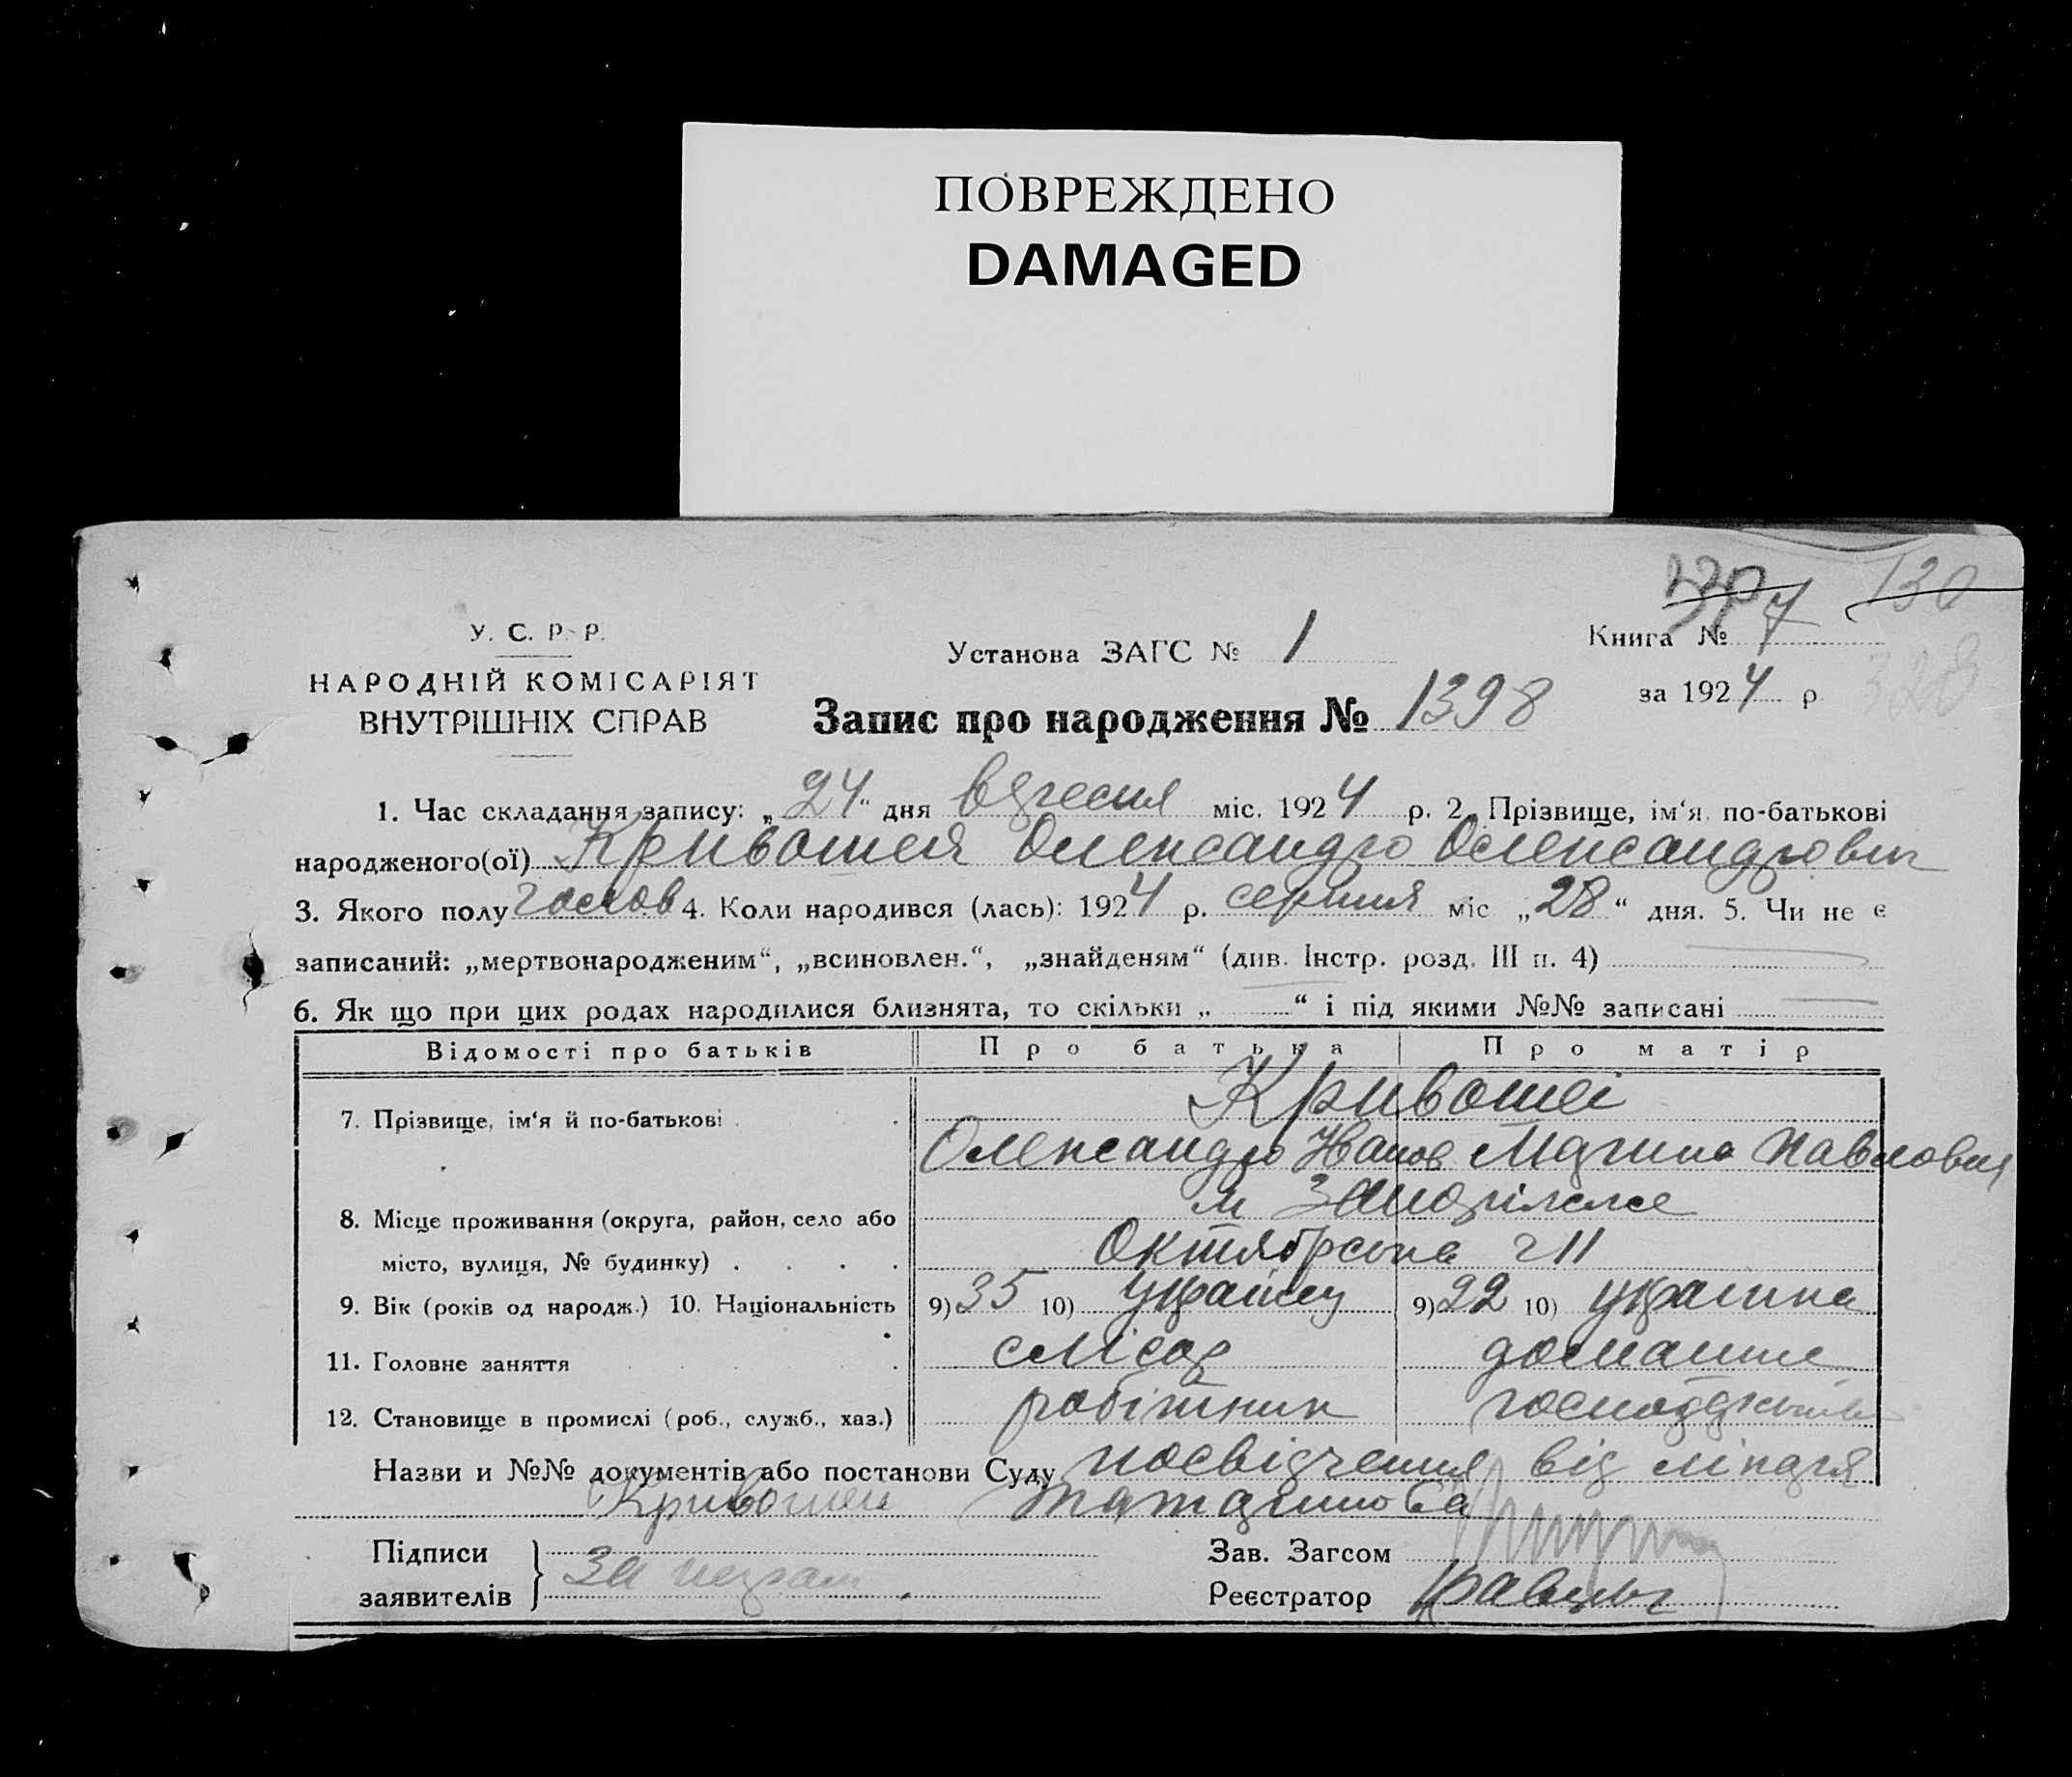 ПОВРЕЖДЕНО
DAMAGED
130
У. С. Р. Р.
НАРОДНІЙ КОМІСАРІЯТ
ВНУТРІШНІХ СПРАВ
Установа ЗАГС № 1
Книга № 7
за 1924 р.
328
Запис про народження № 1398
1. Час складання запису: „24“ дня вересня міс. 1924 р. 2. Прізвище, ім‘я, по-батькові
народженого(ої) Кривошея Олександр Олександрович
3. Якого полу 4. Коли народився (лась): 1924 р. серпня міс „28“ дня. 5. Чи не є
записаний: „мертвонародженим“, „всиновлен.“, „знайденям“ (див. Інстр. розд. III п. 4)
6. Як що при цих родах народилися близнята, то скільки „ “ і під якими №№ записані
Відомості про батьків Про батька Про матір
7. Прізвище, ім‘я й по-батькові Кривошеї
Олександр Марина Павловна
8. Місце проживання (округа, район, село або м Запоріжже
місто, вулиця, № будинку) Октябрська 211
9. Вік (років од народж.) 10. Національність 9) 35 10) украінец 9) 22 10) украінка
11. Головне заняття слісар домашнє
12. Становище в промислі (роб., служб., хаз.) робітник
Назви и №№ документів або постанови Суду посвідчення від лікаря
Кривошеи
Підписи
заявителів
За неграм.
Зав. Загсом
Реєстратор